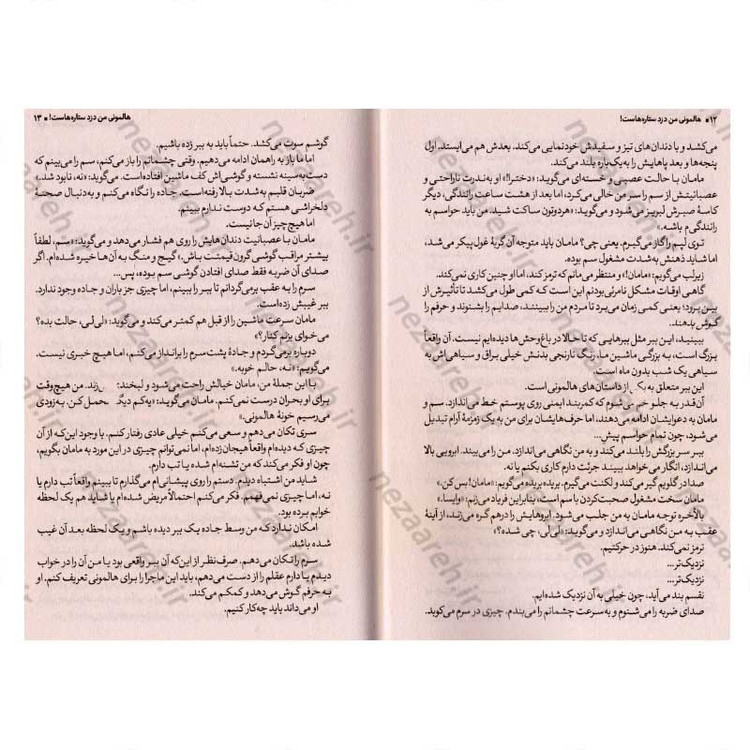 ۱۲ • هالمونی من دزد ستاره‌هاست!
می‌کشد و با دندان‌های تیز و سفیدش خودنمایی می‌کند. بعدش هم می‌ایستد. اول
پنجه‌ها و بعد پاهایش را به یک‌باره بلند می‌کند.
مامان با حالت عصبی و خسته‌ای می‌گوید: «دخترا!» او به‌ندرت ناراحتی و
عصبانیتش از سم را سر من خالی می‌کرد، اما بعد از هشت ساعت رانندگی، دیگر
کاسهٔ صبرش لبریز می‌شود و می‌گوید: «هردوتون ساکت شید، من باید حواسم به
رانندگی‌م باشه.»
توی لپم را گاز می‌گیرم. یعنی چی؟ مامان باید متوجه آن گربهٔ غول‌پیکر می‌شد،
اما شاید ذهنش به‌شدت مشغول سم بوده.
زیرلب می‌گویم: «مامان!» و منتظر می‌مانم که ترمز کند، اما او چنین کاری نمی‌کند.
گاهی اوقات مشکل نامرئی‌بودن این است که کمی طول می‌کشد تا تأثیرش از
بین برود؛ یعنی کمی زمان می‌برد تا مردم من را ببینند، صدایم را بشنوند و حرفم را
گوش بدهند.
ببینید، این ببر مثل ببرهایی که تا حالا در باغ‌وحش‌ها دیده‌ایم نیست. آن واقعاً
بزرگ است، به بزرگی ماشین ما. رنگ نارنجی بدنش خیلی براق و سیاهی‌اش به
سیاهی یک شب بدون ماه است.
این ببر متعلق به یکی از داستان‌های هالمونی است.
آن‌قدر به جلو خم می‌شوم که کمربند ایمنی روی پوستم خط می‌اندازد. سم و
مامان به دعوایشان ادامه می‌دهند، اما حرف‌هایشان برای من به یک زمزمهٔ آرام تبدیل
می‌شود، چون تمام حواسم پیشِ...
ببر سر بزرگش را بلند می‌کند و به من نگاهی می‌اندازد. من را می‌بیند. ابرویی بالا
می‌اندازد، انگار می‌خواهد ببیند جرئت دارم کاری بکنم یا نه.
صدا در گلویم گیر می‌کند و لکنت می‌گیرم. بریده بریده می‌گویم: «مامان! بس کن.»
مامان سخت مشغول صحبت‌کردن با سم است، بنابراین فریاد می‌زنم: «وایسا.»
بالأخره توجه مامان به من جلب می‌شود. ابروهایش را درهم گره می‌زند، از آینهٔ
عقب به من نگاهی می‌اندازد و می‌گوید: «لی‌لی، چی شده؟»
ترمز نمی‌کند. هنوز در حرکتیم.
نزدیک‌تر...
نزدیک‌تر...
نفسم بند می‌آید، چون خیلی به آن نزدیک شده‌ایم.
صدای ضربه را می‌شنوم و به‌سرعت چشمانم را می‌بندم. چیزی در سرم می‌کوبد.
هالمونی من دزد ستاره‌هاست! • ۱۳
گوشم سوت می‌کشد. حتماً باید به ببر زده باشیم.
اما ما باز به راهمان ادامه می‌دهیم. وقتی چشمانم را باز می‌کنم، سم را می‌بینم که
دست‌به‌سینه نشسته و گوشی‌اش کف ماشین افتاده است. می‌گوید: «نه، نابود شد.»
ضربان قلبم به‌شدت بالا رفته است. جاده را نگاه می‌کنم و به‌دنبال صحنهٔ
دلخراشی هستم که دوست ندارم ببینم.
اما هیچ چیز آن‌جا نیست.
مامان با عصبانیت دندان‌هایش را روی هم فشار می‌دهد و می‌گوید: «سم، لطفاً
بیشتر مراقب گوشی گرون قیمتت باش.» گیج و منگ به آن‌ها خیره شده‌ام. اگر
صدای آن ضربه فقط صدای افتادن گوشی سم بوده، پس...
سرم را به عقب برمی‌گردانم تا ببر را ببینم، اما چیزی جز باران و جاده وجود ندارد.
ببر غیبش زده است.
مامان سرعت ماشین را از قبل هم کمتر می‌کند و می‌گوید: «لی‌لی، حالت بده؟
می‌خوای بزنم کنار؟»
دوباره برمی‌گردم و جادهٔ پشت‌سرم را برانداز می‌کنم، اما هیچ خبری نیست.
می‌گویم: «نه، حالم خوبه.»
با این جملهٔ من، مامان خیالش راحت می‌شود و لبخند می‌زند. من هیچ‌وقت
برای او بحران درست نمی‌کنم. مامان می‌گوید: «یه‌کم دیگه تحمل کن. به‌زودی
می‌رسیم خونهٔ هالمونی.»
سری تکان می‌دهم و سعی می‌کنم خیلی عادی رفتار کنم. با وجود این‌که از آن
چیزی که دیده‌ام واقعاً هیجان‌زده‌ام، اما نمی‌توانم چیزی در این مورد به مامان بگویم،
چون او فکر می‌کند که من تشنه‌ام شده یا تب دارم.
شاید من اشتباه دیدم. دستم را روی پیشانی‌ام می‌گذارم تا ببینم واقعاً تب دارم یا
نه، اما چیزی نمی‌فهمم. فکر می‌کنم احتمالاً مریض شده‌ام یا شاید هم یک لحظه
خوابم برده بود.
امکان ندارد که من وسط جاده یک ببر دیده باشم و یک لحظه بعد آن غیب
شده باشد.
سرم را تکان می‌دهم. صرف‌نظر از این‌که آن ببر واقعی بود یا من آن را در خواب
دیدم یا دارم عقلم را از دست می‌دهم، باید این ماجرا را برای هالمونی تعریف کنم. او
به حرفم گوش می‌دهد و کمکم می‌کند.
او می‌داند باید چه‌کار کنیم.
nezaareh.ir